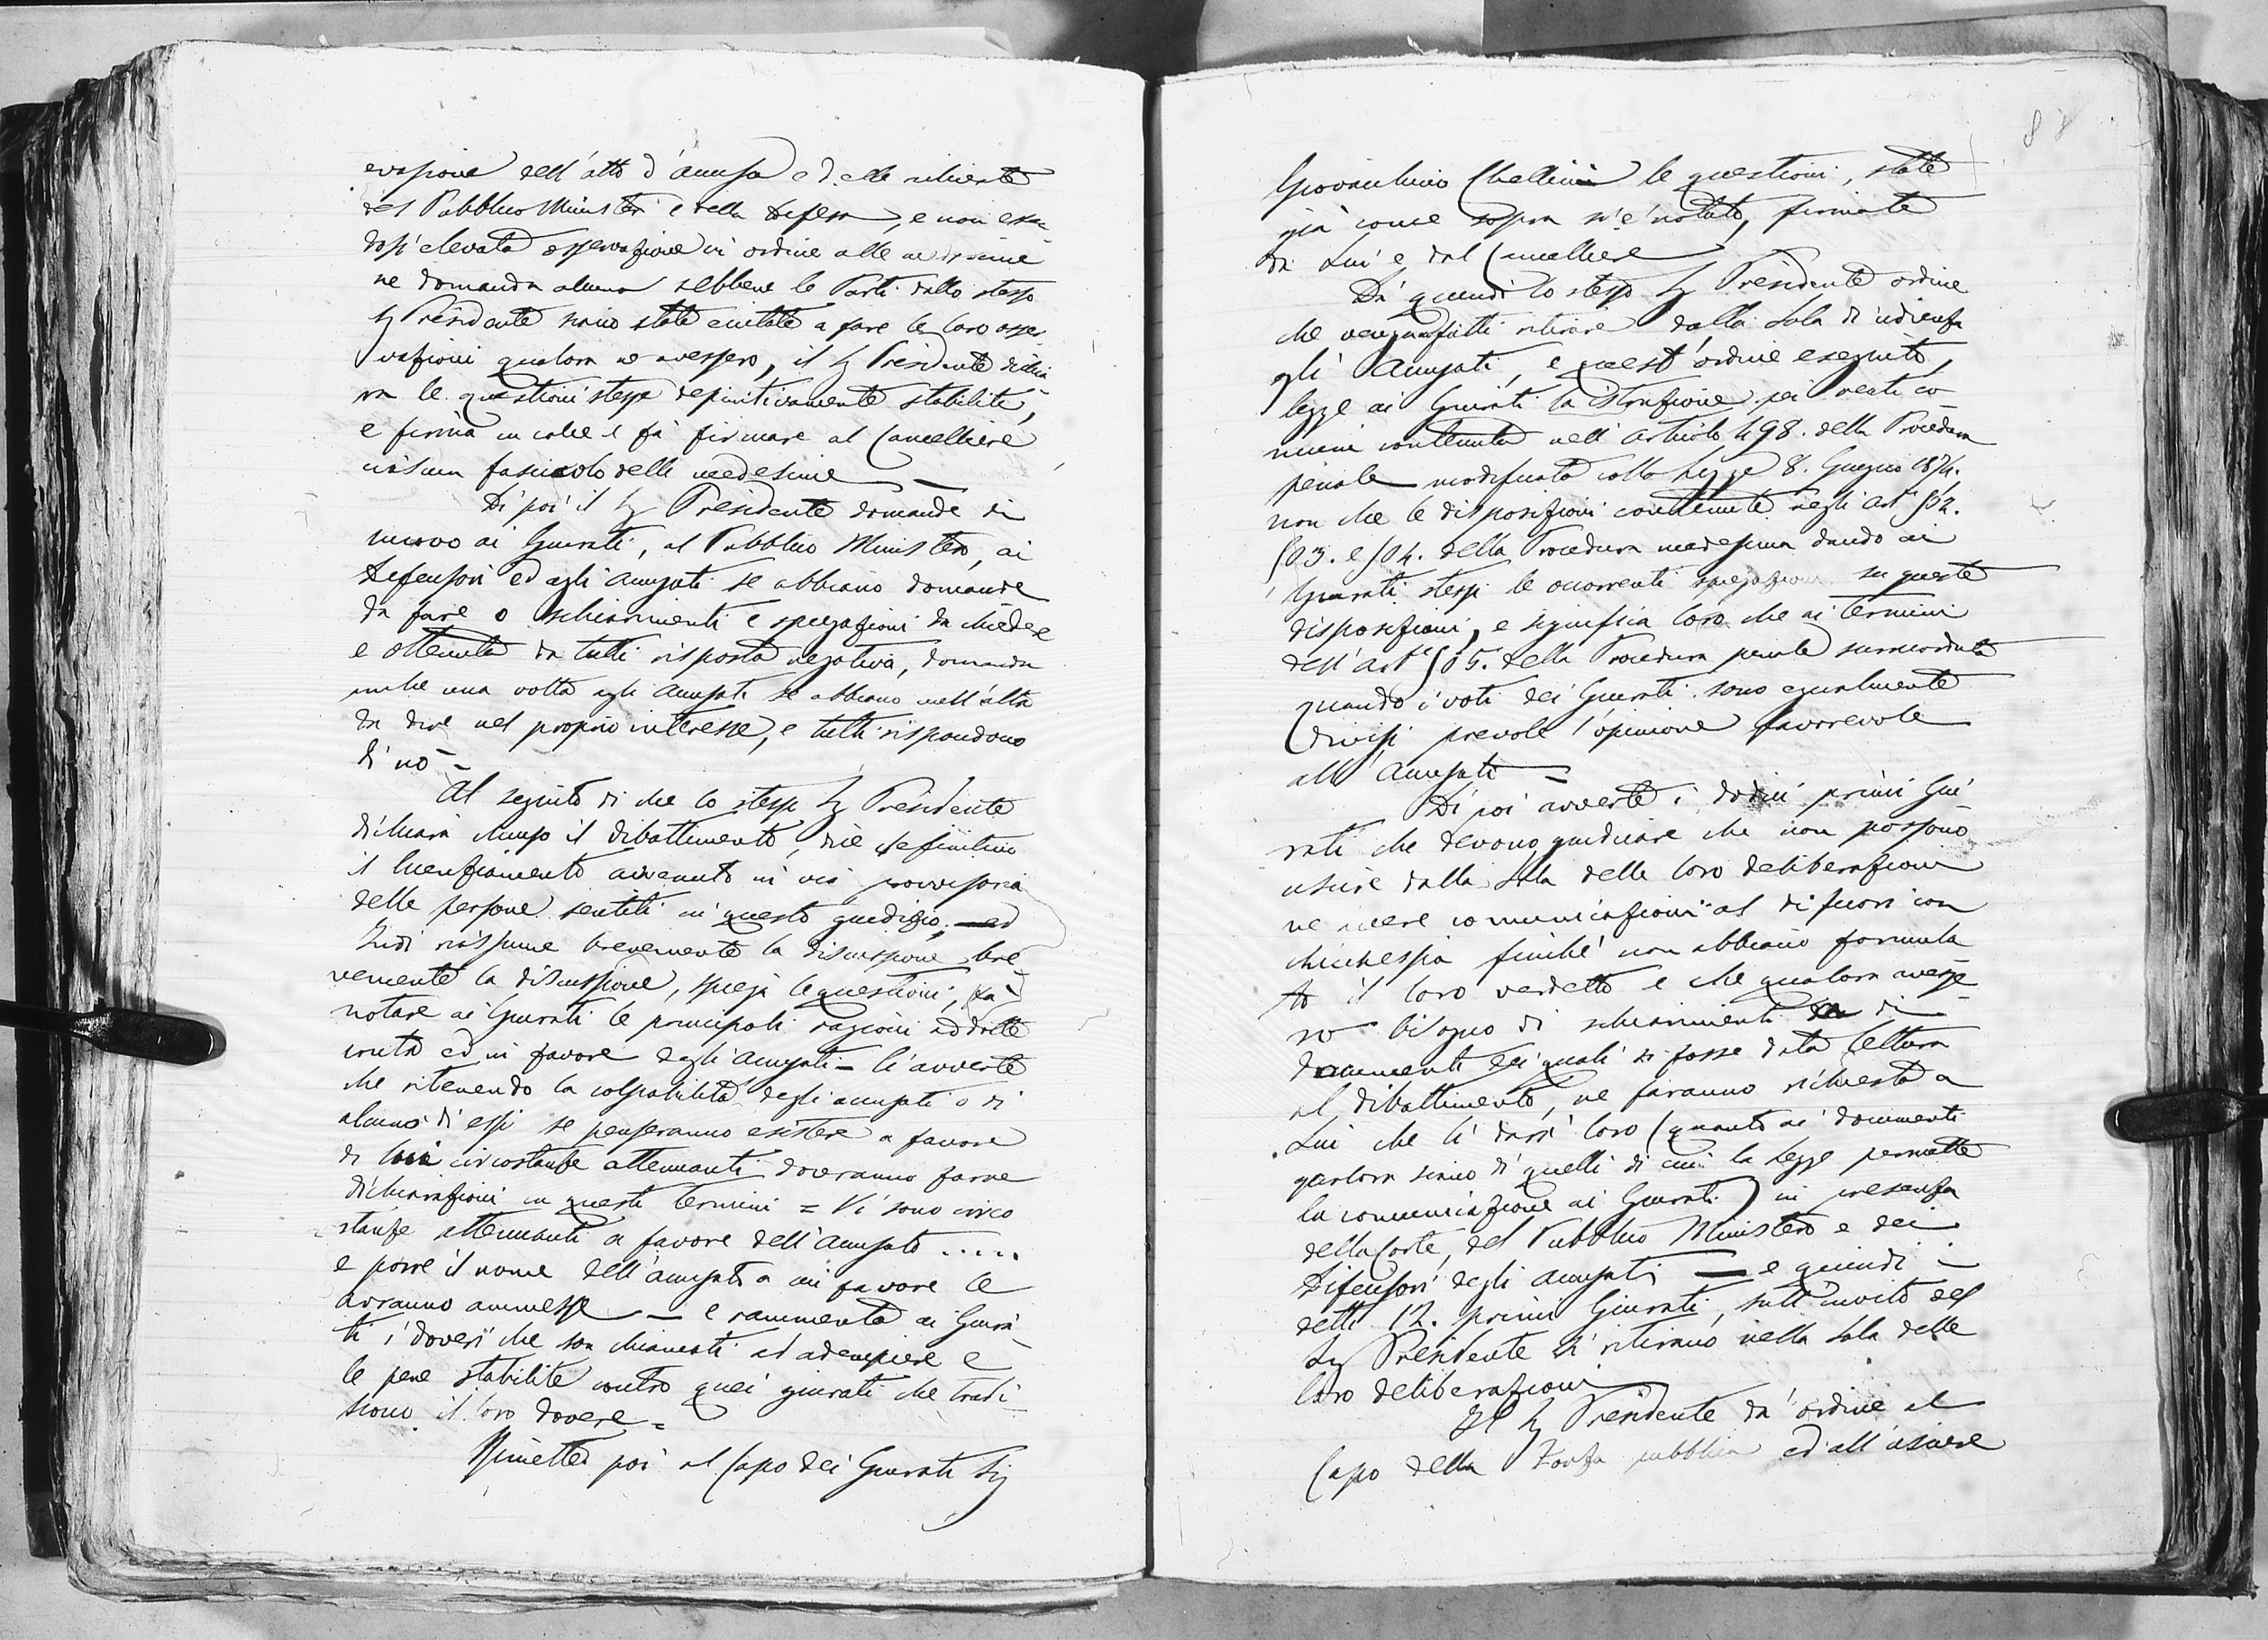 evasione dell'atto d'accusa e delle richieste
del Pubblico Ministero e della difesa, e non essen
dosi elevata osservazione in ordine alle medesime
ne domanda alcuna sebbene le Parti dallo stesso
Sig Presidente siano state invitate a fare le loro osser
vazioni qualora ne avessero, il Sig Presidente dichia
ra le questioni stesse definitivamente stabilite,
e firma in calce e fà firmare al Cancelliere
ciascun fascicolo delle medesime —
Di poi il Sig Presidente domanda di
nuovo ai Giurati, al Pubblico Ministero, ai
Difensori ed agli accusati se abbiano domande
da fare o schiarimenti e spiegazioni da chiedere
e ottenuta da tutti risposta negativa, domanda
anche una volta agli accusati se abbiano null'altro
da dire nel proprio interesse, e tutti rispondono
di nò =
Al seguito di che lo stesso Sig Presidente
dichiara chiuso il dibattimento, dice definitivo
il licenziamento avvenuto in via provvisoria
delle persone sentite in questo giudizio, ed
Indi riassume brevemente la discussione bre
vemente la discussione, spiega le questioni, fà
notare ai Giurati le principali ragioni addotte
contro ed in favore degli accusati = li avverte
che ritenendo la colpabilità degli accusati o di
alcuno di essi se penseranno esistere a favore
di loro circostanze attenuanti dovranno farne
dichiarazioni in questi termini = Vi sono circo
stanze attenuanti a favore dell'accusato .....
e porre il nome dell'accusato a cui favore le
avranno ammesse — e rammenta ai Giura
ti i doveri che son chiamati ad adempiere e
le pene stabilite contro quei giurati che tradi
scono il loro dovere =
Rimette poi al Capo dei Giurati Sig
87
Giovacchino Chellini le questioni, state
già come sopra si è notato, firmate
da Lui e dal Cancelliere
Dà quindi lo stesso Sig Presidente ordine
che vengan fatti ritirare dalla Sala di udienza
gli accusati, e quest'ordine eseguito,
legge ai Giurati la istruzione pei reati co
muni contenuta nell'articolo 498. della Procedura
penale modificata colla Legge 8. Giugno 1874.
non che le disposizioni contenute negli arti 502.
503. e 504. della Procedura medesima dando ai
Giurati stessi le occorrenti spiegazioni su queste
disposizioni, e significa loro che ai termini
dell'arte 505. della Procedura penale surricordata
quando i voti dei Giurati sono egualmente
divisi prevale l'opinione favorevole
alli accusati =
Di poi avverte i dodici primi Giu
rati che devono giudicare che non possono
uscire dalla Sala delle loro deliberazioni
ne avere comunicazioni al di fuori con
chicchessia finchè non abbiano formula
to il loro verdetto e che qualora avesse
ro bisogno di schiarimenti di
documenti dei quali si fosse data lettura
al dibattimento, ne faranno richiesta a
Lui che li darà loro (quanto ai documenti
qualora siano di quelli di cui la Legge permette
la comunicazione ai Giurati) in presenza
della Corte, del Pubblico Ministero e dei
Difensori degli accusati — e quindi i
detti 12. primi Giurati, sull'invito del
Sig Presidente si ritirano nella Sala delle
loro deliberazioni
Il Sig Presidente dà ordine al
Capo della Forza pubblica ed all'usciere